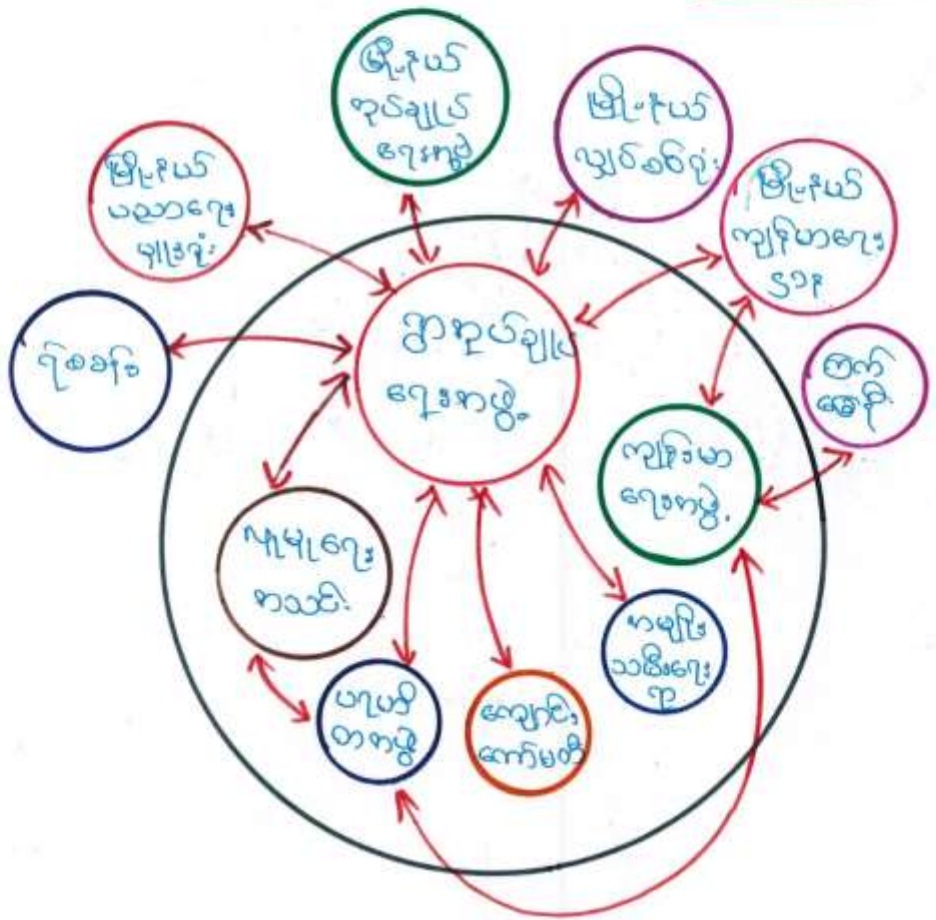 မြို့နယ်
အုပ်ချုပ်
ရေးအဖွဲ့
မြို့နယ်
လျှပ်စစ်ရုံး
မြို့နယ်
ပညာရေး
မှူးရုံး
မြို့နယ်
ကျန်းမာရေး
ဌာန
ရဲစခန်း
ရွာအုပ်ချုပ်
ရေးအဖွဲ့
ကြက်
ခြေနီ
ကျန်းမာ
ရေးအဖွဲ့
လူမှုရေး
အသင်း
အမျိုး
သမီးရေး
ရာ
ပရဟိ
တအဖွဲ့
ကျောင်း
ကော်မတီ